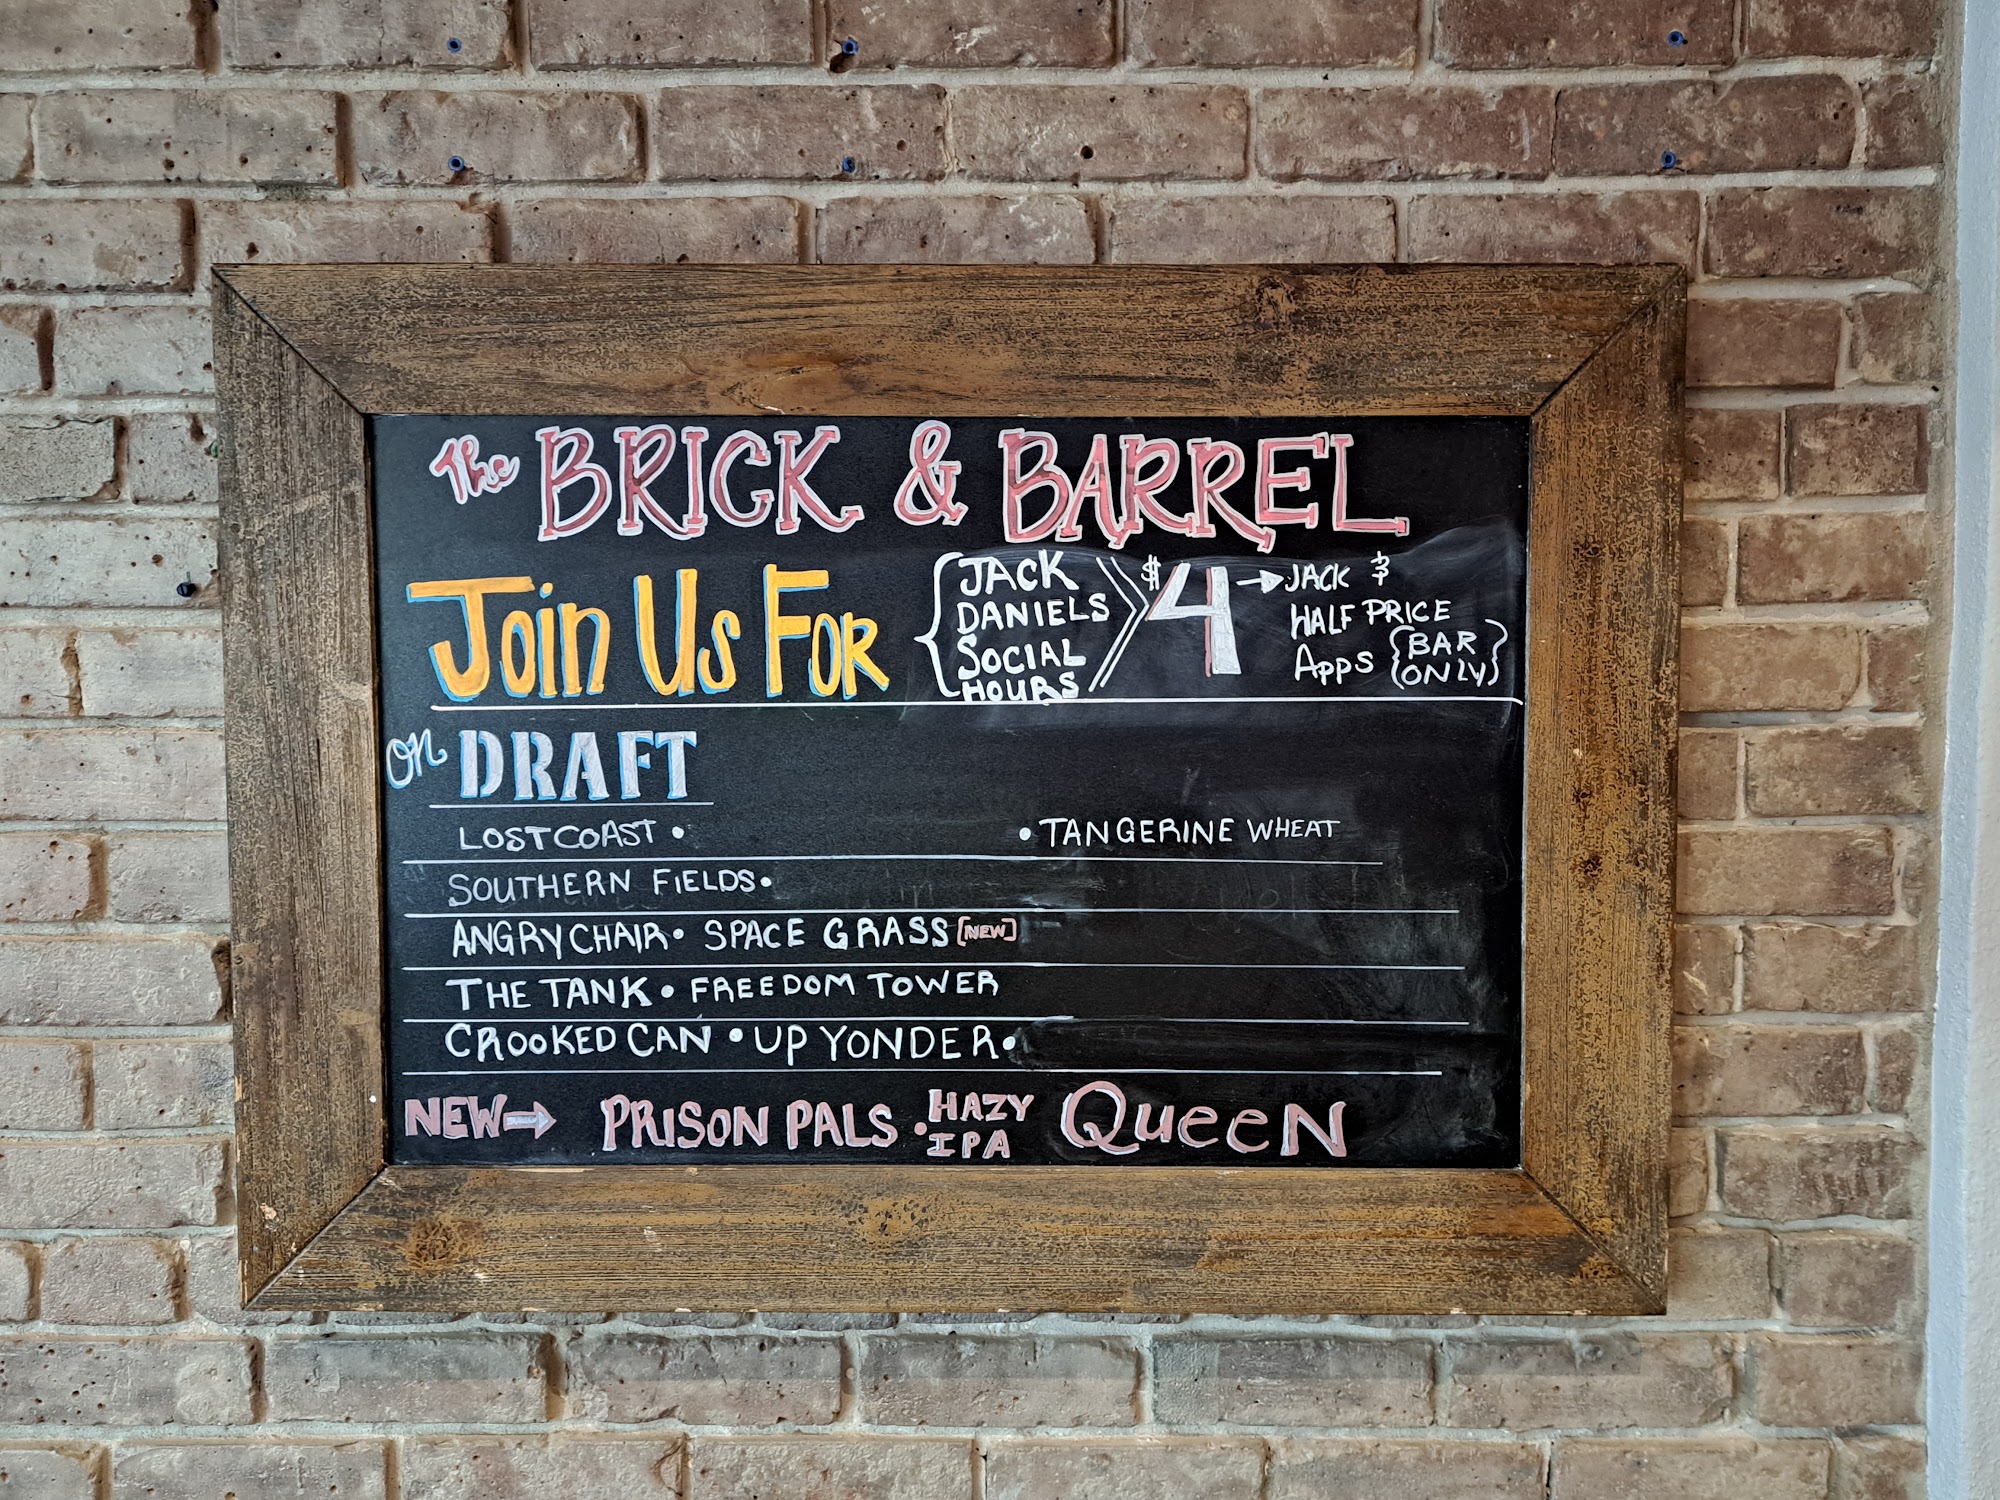 The BRICK & BARREL
Join Us For
{JACK
DANIELS
SOCIAL
HOURS
$4 → JACK &
HALF PRICE
Apps {BAR
ONLY}
on DRAFT
LOST COAST • • TANGERINE WHEAT
SOUTHERN FIELDS •
ANGRY CHAIR • SPACE GRASS [NEW]
THE TANK • FREEDOM TOWER
CROOKED CAN • UP YONDER •
NEW → PRISON PALS • HAZY IPA QueeN